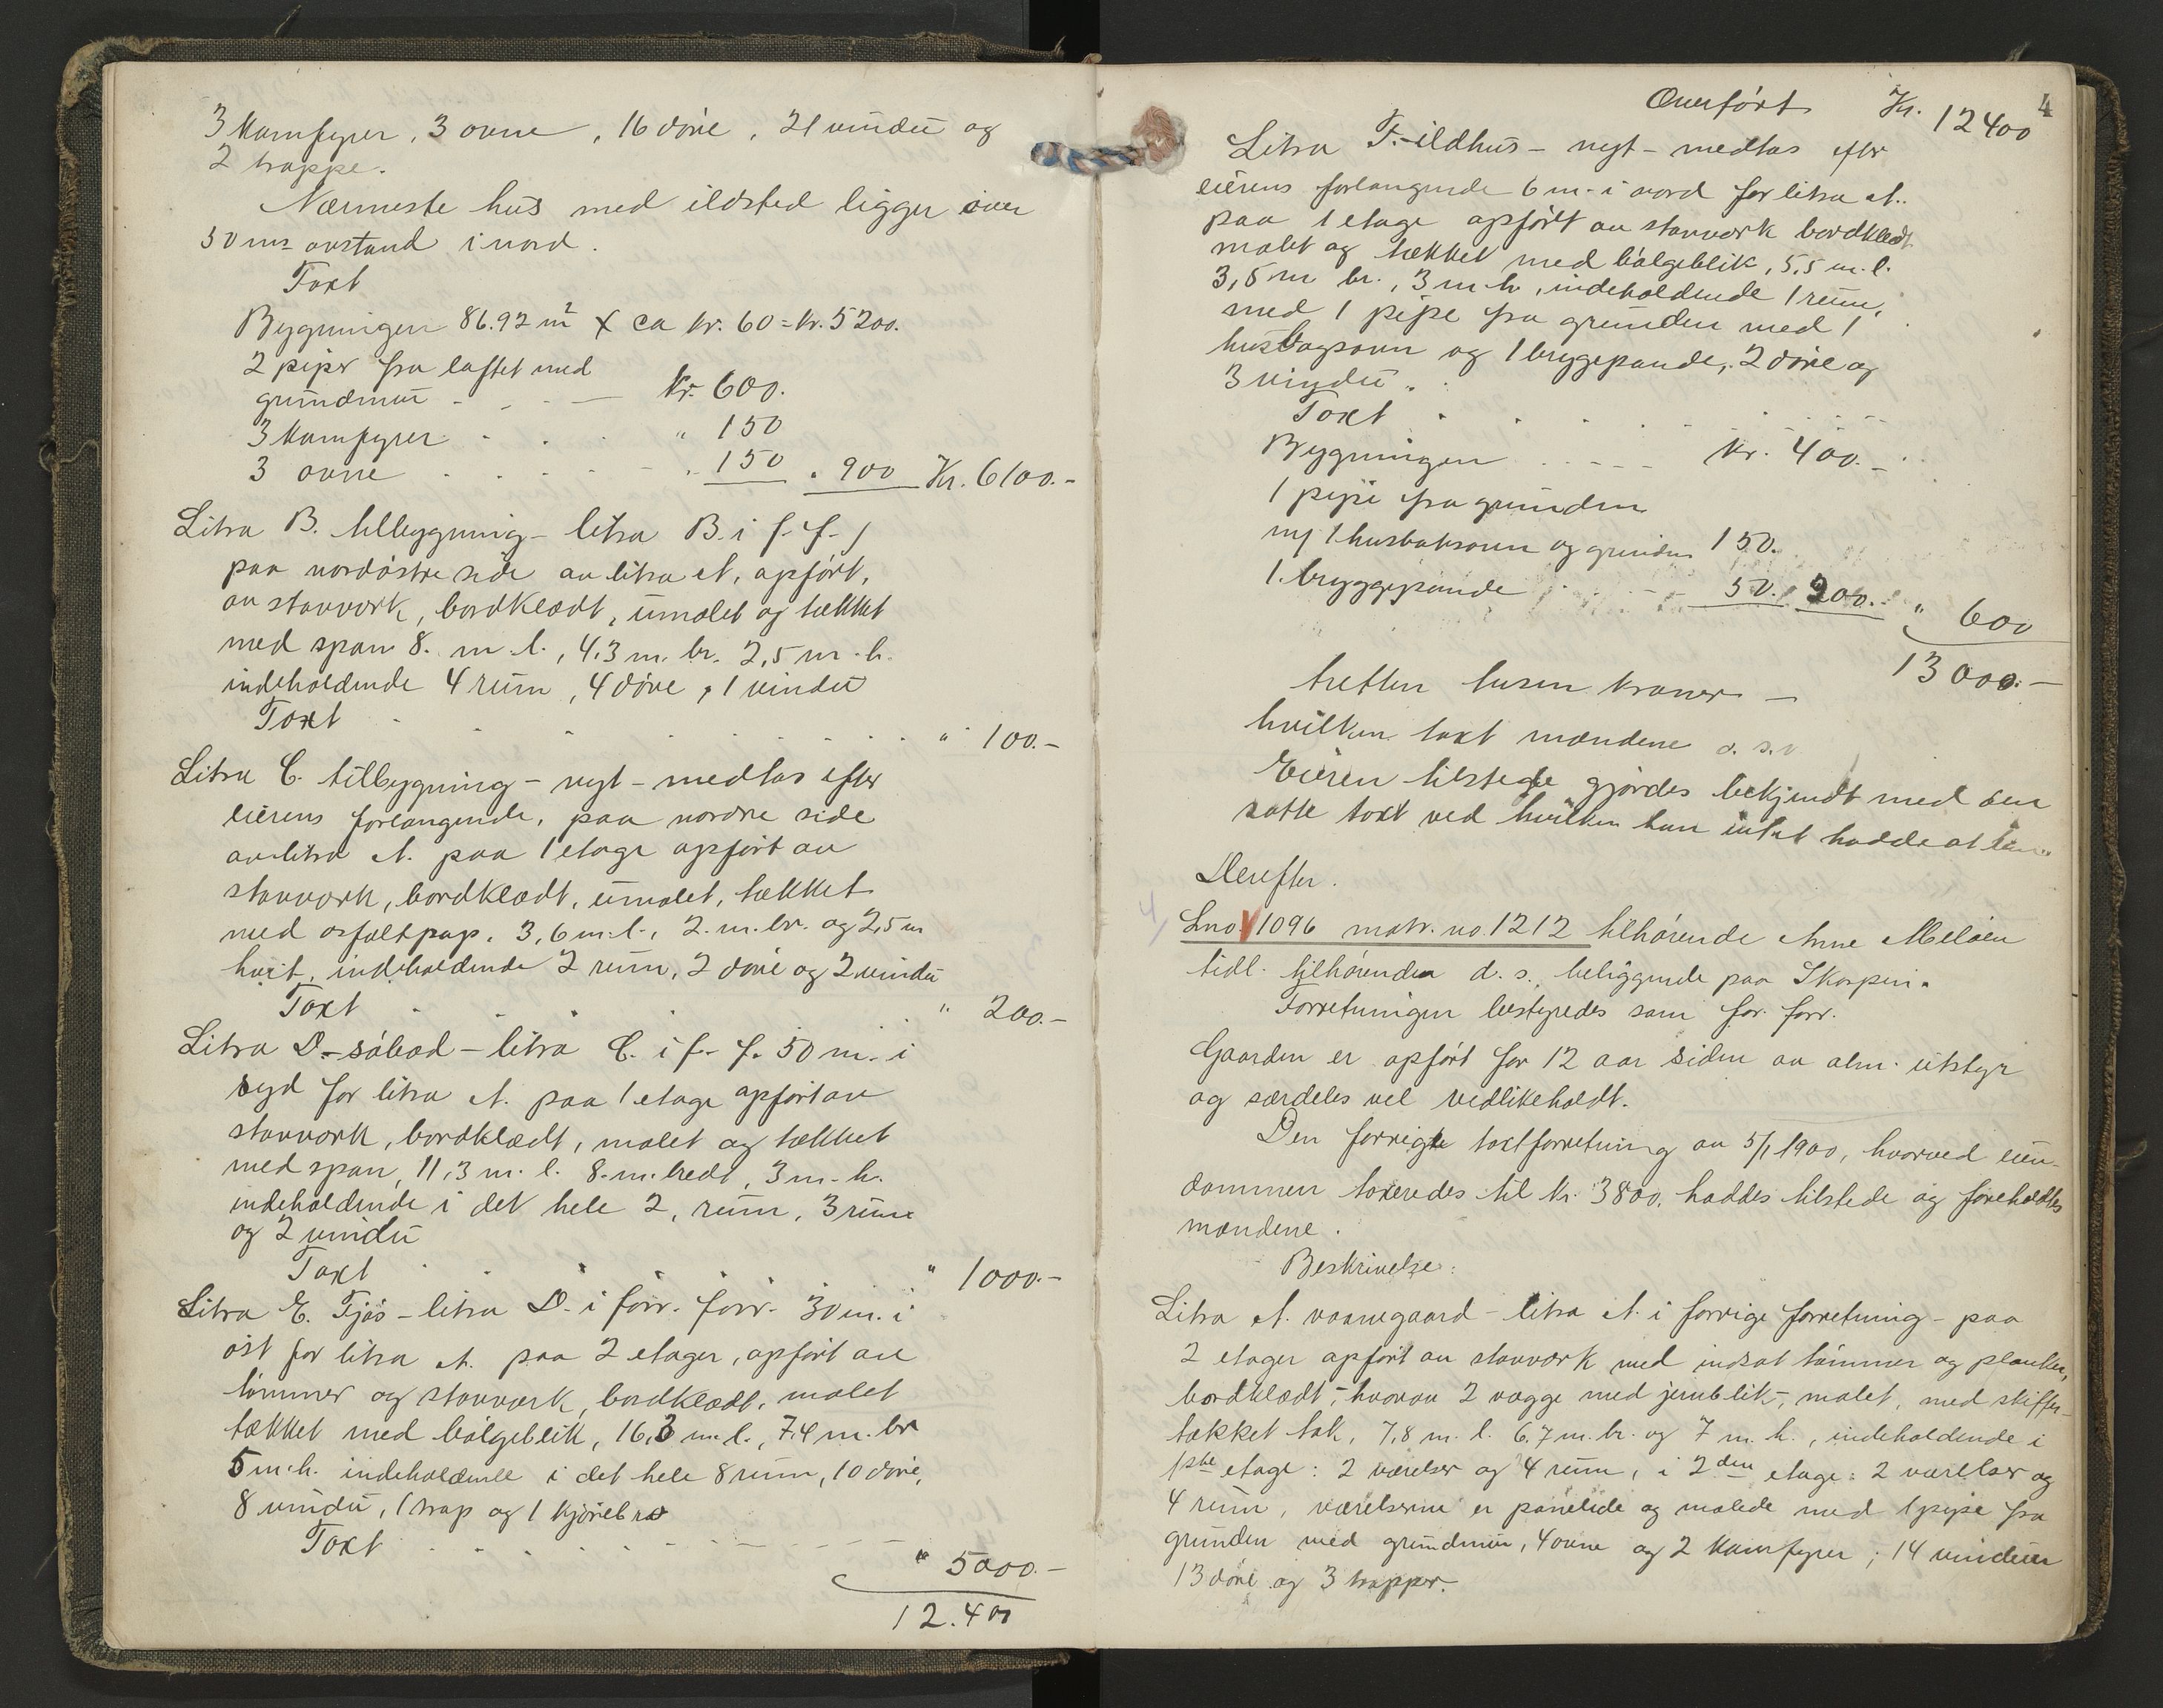 3 Komfyrer, 3 ovne, 16 døre, 21 vindu og
2 trappe.
Nærmeste hus med ildsted ligger over
50 ms avstand i nord.
Taxt
Bygningen 86.92 m² X ca kr. 60 = kr. 5200.
2 piper fra loftet med
grundmur - - - — kr. 600.
3 Komfyrer - . . " 150
3 ovne . . . - - " 150 " 900 Kr. 6100.-
Litra B. tilbygning - litra B. i f. f. /
paa nordøstre side av litra A. opført,
av stavverk, bordklædt, umalet og tækket
med spon 8. m. l., 4.3 m. br. 2,5 m. h.
indeholdende 4 rum, 4 døre, 1 vindu
Taxt - - - . . . . " 100.-
Litra C. tilbygning - nyt - medtas efter
eierens forlangende, paa nordre side
av litra A. paa 1 etage opført av
stavverk, bordklædt, umalet, tækket
med asfaltpap. 3,6 m. l., 2. m. br. og 2,5 m
høit, indeholdende 2 rum, 2 døre og 2 vindu
Taxt . . . " 200.-
Litra D. - søbod - litra C. i f. f. 50 m. i
syd for litra A. paa 1 etage opført av
stavverk, bordklædt, malet og tækket
med spon, 11,3 m. l. 8. m. bredt, 3 m. h.
indeholdende i det hele 2, rum, 3 rum
og 2 vindu
Taxt . . . . " 1000.-
Litra E. Fjøs - litra D. i forr. forr. 30 m. i
øst for litra A. paa 2 etager, opført av
tømmer og stavverk, bordklædt, malet
tækket med bølgeblik, 16,3 m. l., 7,4 m. br
5 m. h. indeholdende i det hele 8 rum, 10 døre,
8 vindu, 1 trap og 1 kjørebro
Taxt . . . . . . - - - " 5000.-
12.400
4
Overført Kr. 12400
Litra F. - ildhus - nyt - medtas efter
eierens forlangende 6 m. i nord for litra A..
paa 1 etage opført av stavverk bordklædt
malet og tækket med bølgeblik, 5,5 m. l.
3,5 m br., 3 m. h., indeholdende 1 rum,
med 1 pipe fra grunden med 1
husbagsovn og 1 bryggepande, 2 døre og
3 vindu.
Taxt . . . . . . .
Bygningen . - - - kr. 400.-
1 pipe fra grunden
m/ 1 husbaksovn og grunden 150.
1. bryggepande . . - - 50. 200.- " 600
13000.-
tretten tusen kroner —
hvilken taxt mændene o. s. v.
Eieren tilstede gjördes bekjendt med den
satte taxt ved hvilken han intet hadde at
Derefter.
4/
Lno. 1096 matr. no. 1212 tilhørende Arne Meløen
tidl. tilhørende d. s., beliggende paa Skorpen.
Forretningen bestyredes som for. forr.
Gaarden er opført for 12 aar siden av alm. utstyr
og særdeles vel vedlikeholdt.
Den forrige taxtforretning av 5/1 1900, hvorved eien-
dommen taxeredes til kr. 3800. haddes tilstede og foreholdtes
mændene.
Beskrivelse:
Litra A. vaanegaard - litra A. i forrige forretning - paa
2 etager opført av stavverk med indsat tømmer og planker,
bordklædt, - hvorav 2 vægge med jernblik -, malet, med skiffer-
tækket tak, 7,8 m. l. 6,7 m. br. og 7 m. h., indeholdende i
1ste etage: 2 værelser og 4 rum, i 2den etage: 2 værelser og
4 rum, værelserne er panelede og malede med 1 pipe fra
grunden med grundmur, 4 ovne og 2 komfyrer; 14 vinduer
13 døre og 3 trapper.